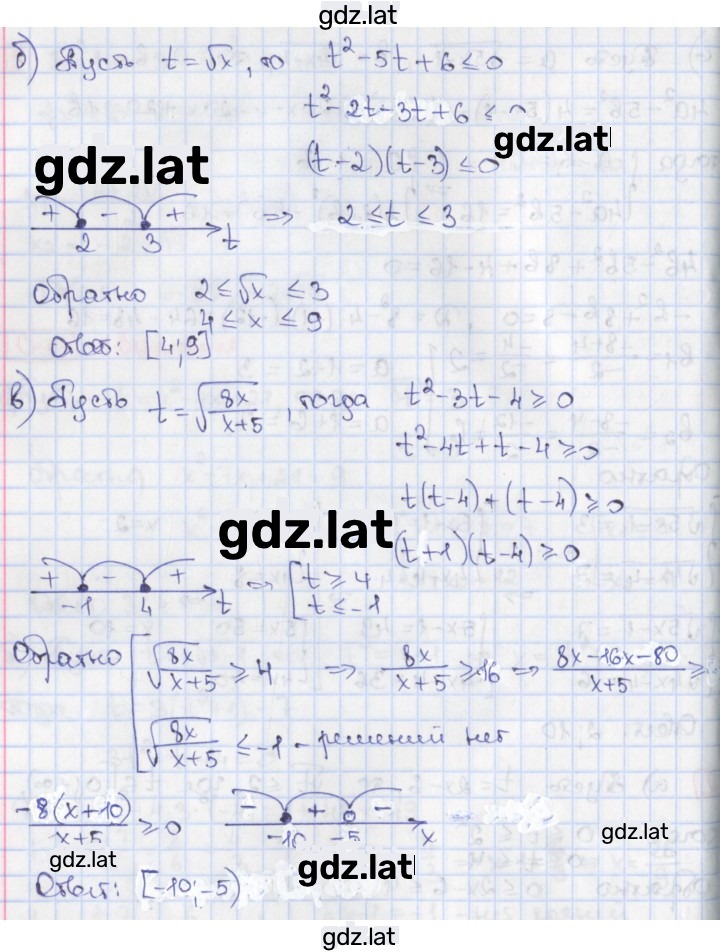 gdz.lat
б) Пусть t = √x, то t² - 5t + 6 ≤ 0
t² - 2t - 3t + 6 ≤
gdz.lat
(t - 2)(t - 3) ≤ 0
gdz.lat
+ - + 2 3 t => 2 ≤ t ≤ 3
Обратно 2 ≤ √x ≤ 3
4 ≤ x ≤ 9
Ответ: [4; 9]
в) Пусть t = √(8x/(x+5)), тогда t² - 3t - 4 ≥ 0
t² - 4t + t - 4 ≥ 0
t(t - 4) + (t - 4) ≥ 0
gdz.lat
(t + 1)(t - 4) ≥ 0
+ - + -1 4 t => [ t ≥ 4
t ≤ -1
Обратно [ √(8x/(x+5)) ≥ 4 => 8x/(x+5) ≥ 16 => (8x - 16x - 80)/(x+5) ≥
√(8x/(x+5)) ≤ -1 - решений нет
-8(x+10)/(x+5) ≥ 0 - + - -10 -5 x
gdz.lat
gdz.lat
gdz.lat
Ответ: [-10; -5)
gdz.lat